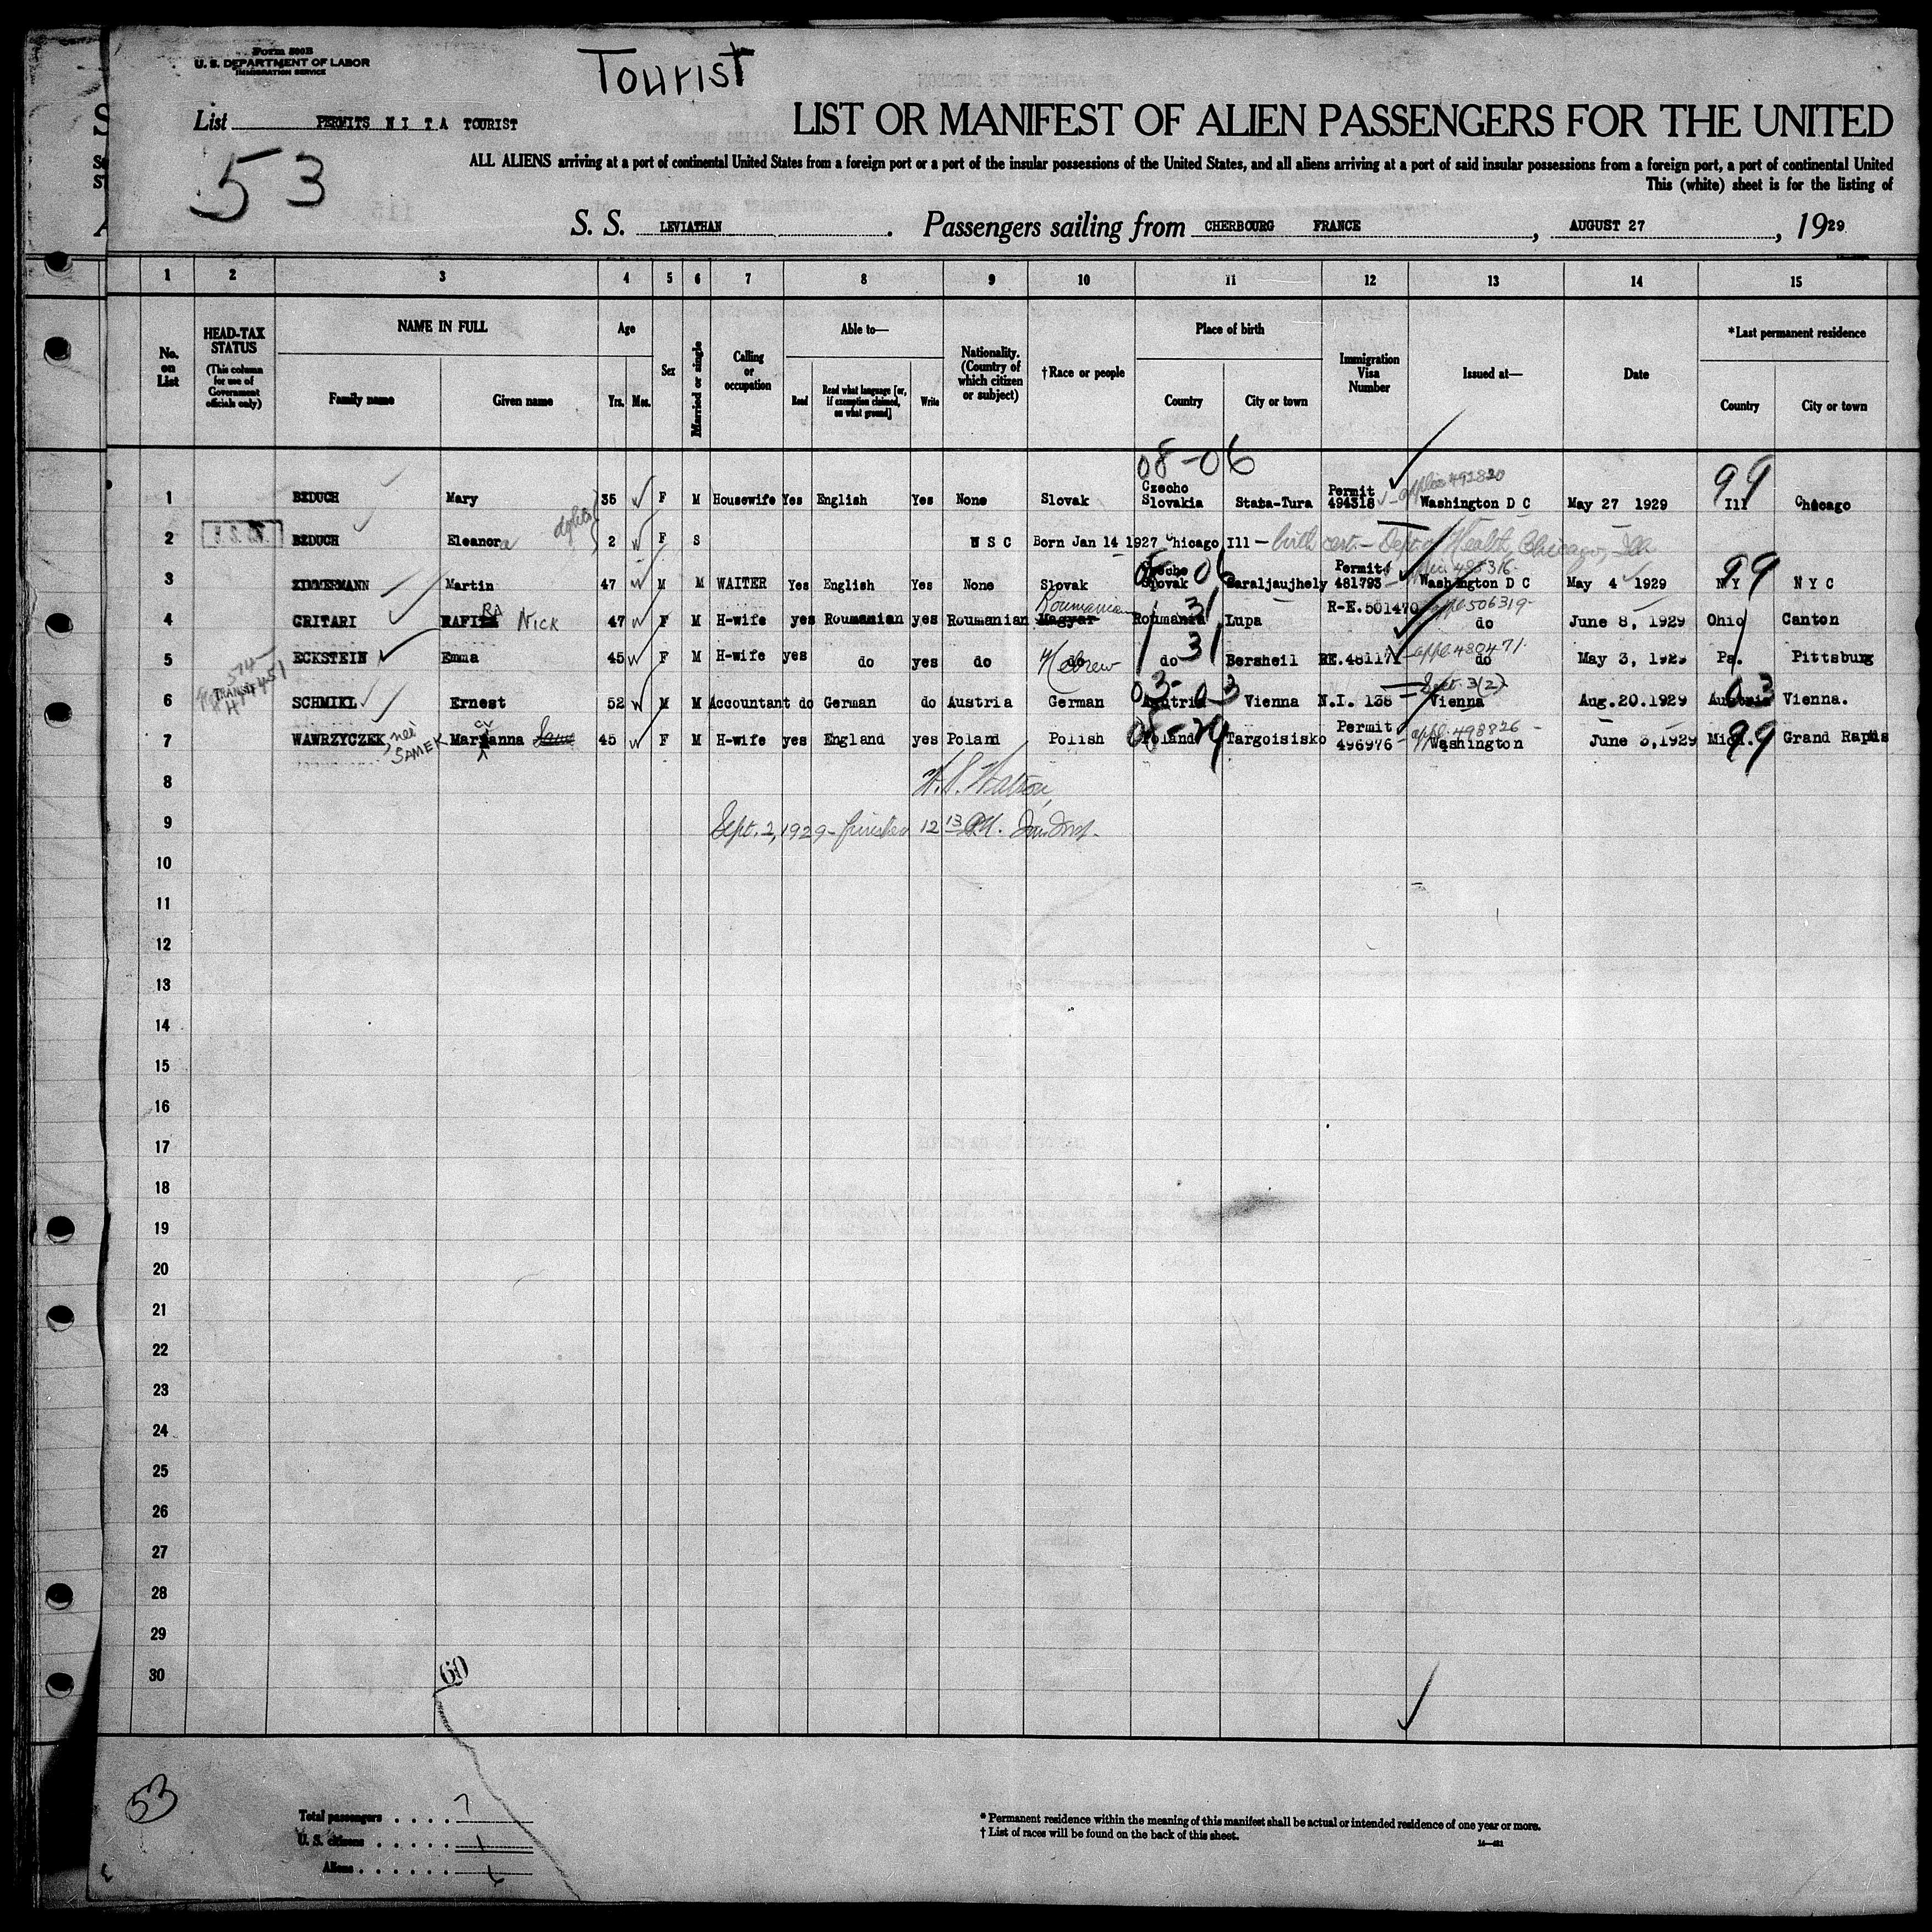 Form 500B
U. S. DEPARTMENT OF LABOR
IMMIGRATION SERVICE
Tourist
List PERMITS N I T A TOURIST
53
LIST OR MANIFEST OF ALIEN PASSENGERS FOR THE UNITED
ALL ALIENS arriving at a port of continental United States from a foreign port or a port of the insular possessions of the United States, and all aliens arriving at a port of said insular possessions from a foreign port, a port of continental United
This (white) sheet is for the listing of
S. S. LEVIATHAN. Passengers sailing from CHERBOURG FRANCE, AUGUST 27, 1929
1 2 3 4 5 6 7 8 9 10 11 12 13 14 15
No. on List
HEAD-TAX STATUS
(This column for use of Government officials only)
NAME IN FULL
Family name Given name
Age
Yrs. Mos.
Sex
Married or single
Calling or occupation
Able to—
Read
Read what language [or, if exemption claimed, on what ground]
Write
Nationality. (Country of which citizen or subject)
†Race or people
Place of birth
Country City or town
Immigration Visa Number
Issued at—
Date
*Last permanent residence
Country City or town
08-06
1 BZDUCH Mary 35 F M Housewife Yes English Yes None Slovak Czecho Slovakia Staba-Tura Permit 494318 applic 492820 Washington D C May 27 1929 Ill 99 Chicago
2 BZDUCH Eleanora 2 F S U S C Born Jan 14 1927 Chicago Ill — birth cert — Dept of Health, Chicago, Ill
3 ZIMMERMANN Martin 47 M M WAITER Yes English Yes None Slovak Czecho Slovak Saraljaujhely Permit 481793 Washington D C May 4 1929 N Y 99 N Y C
4 CRITARI RAFIRA Nick 47 F M H-wife yes Roumanian yes Roumanian Magyar Roumanian Roumania 31 Lupa R-E.501470 appl 506319 do June 8, 1929 Ohio Canton
5 ECKSTEIN Emma 45 F M H-wife yes do yes do Hebrew do 31 Bersheil appl 480471 do May 3, 1929 Pa. Pittsburg
TRANSIT
6 SCHMIKL Ernest 52 M M Accountant do German do Austria German Austria 03-03 Vienna N.I. 138 Sept. 3(2) Vienna Aug.20.1929 Austria 03 Vienna.
7 WAWRZYCZEK neé SAMEK Marianna 45 F M H-wife yes England yes Poland Polish Poland Targoisisko Permit 496976 appl. 498826 Washington June 3,1929 Mich. 99 Grand Rapids
8
9 Sept. 2, 1929 - finished 12 13 PM.
10
11
12
13
14
15
16
17
18
19
20
21
22
23
24
25
26
27
28
29
30
60
53
Total passengers . . . . 7
U. S. citizens . . . . . 1
Aliens . . . . . . 6
* Permanent residence within the meaning of this manifest shall be actual or intended residence of one year or more.
† List of races will be found on the back of this sheet.